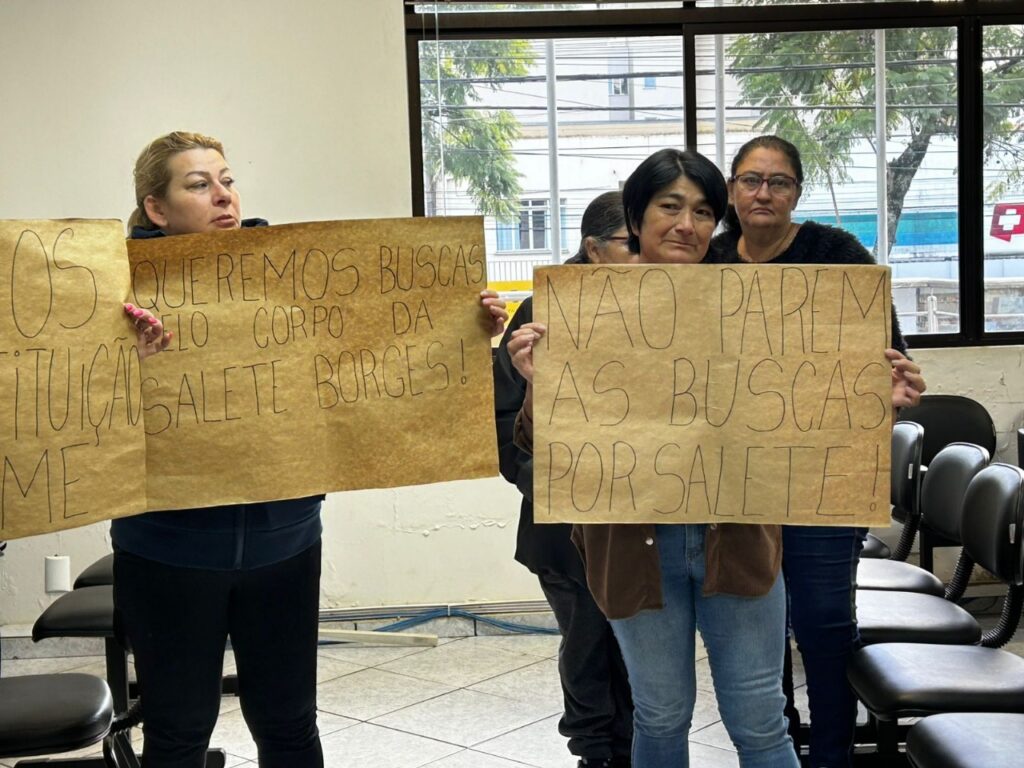 OS
TITUIÇÃO
ME
QUEREMOS BUSCAS
ELO CORPO DA
SALETE BORGES!
NÃO PAREM
AS BUSCAS
POR SALETE!